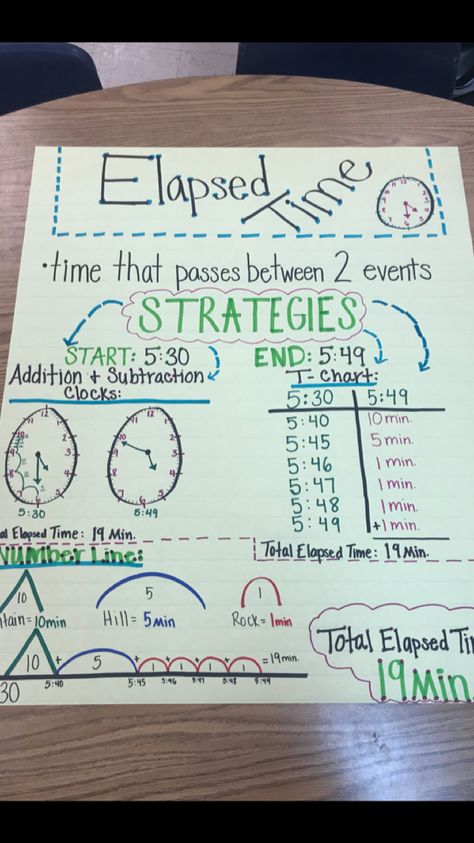 Elapsed Time
•time that passes between 2 events
STRATEGIES
START: 5:30
END: 5:49
Addition + Subtraction
Clocks:
T-Chart:
5:30 5:49
5:40 10 min.
5:45 5 min.
5:46 1 min.
5:47 1 min.
5:48 1 min.
5:49 +1 min.
5:30 5:49
al Elapsed Time: 19 Min.
Total Elapsed Time: 19 Min.
Number Line:
10 5 1
tain = 10min Hill = 5 Min Rock = 1min
Total Elapsed Ti
19 Min
10 + 5 + 1 + 1 + 1 + 1 = 19 min.
30 5:40 5:45 5:46 5:47 5:48 5:49